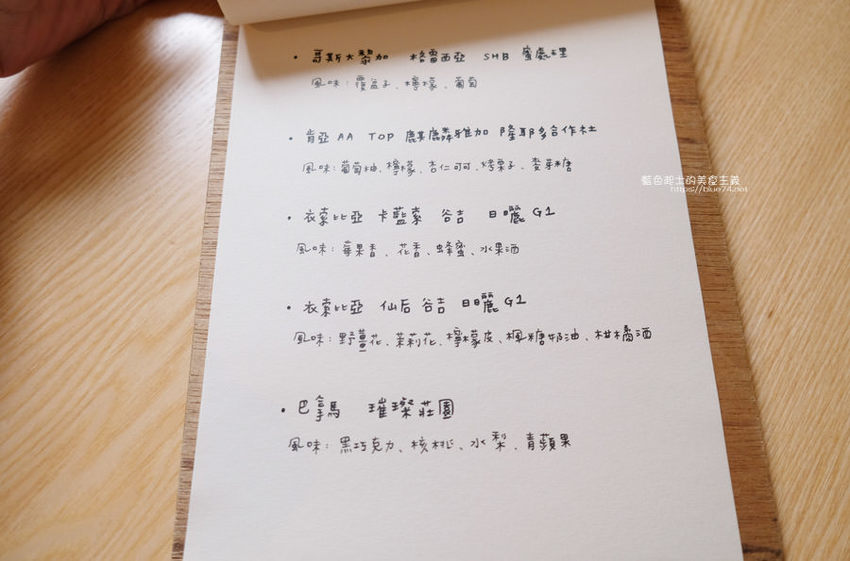 • 哥斯大黎加 格雷西亞 SHB 蜜處理
風味：覆盆子、檸檬、葡萄
• 肯亞 AA TOP 麒麟雅加 隆耶多合作社
風味：葡萄柚、檸檬、杏仁可可、烤栗子、麥芽糖
藍色起士的美食主義
https://blue74.net
• 衣索比亞 卡藍索 谷吉 日曬 G1
風味：莓果香、花香、蜂蜜、水果酒
• 衣索比亞 仙后 谷吉 日曬 G1
風味：野薑花、茉莉花、檸檬皮、楓糖奶油、柑橘酒
• 巴拿馬 璀璨莊園
風味：黑巧克力、核桃、水梨、青蘋果